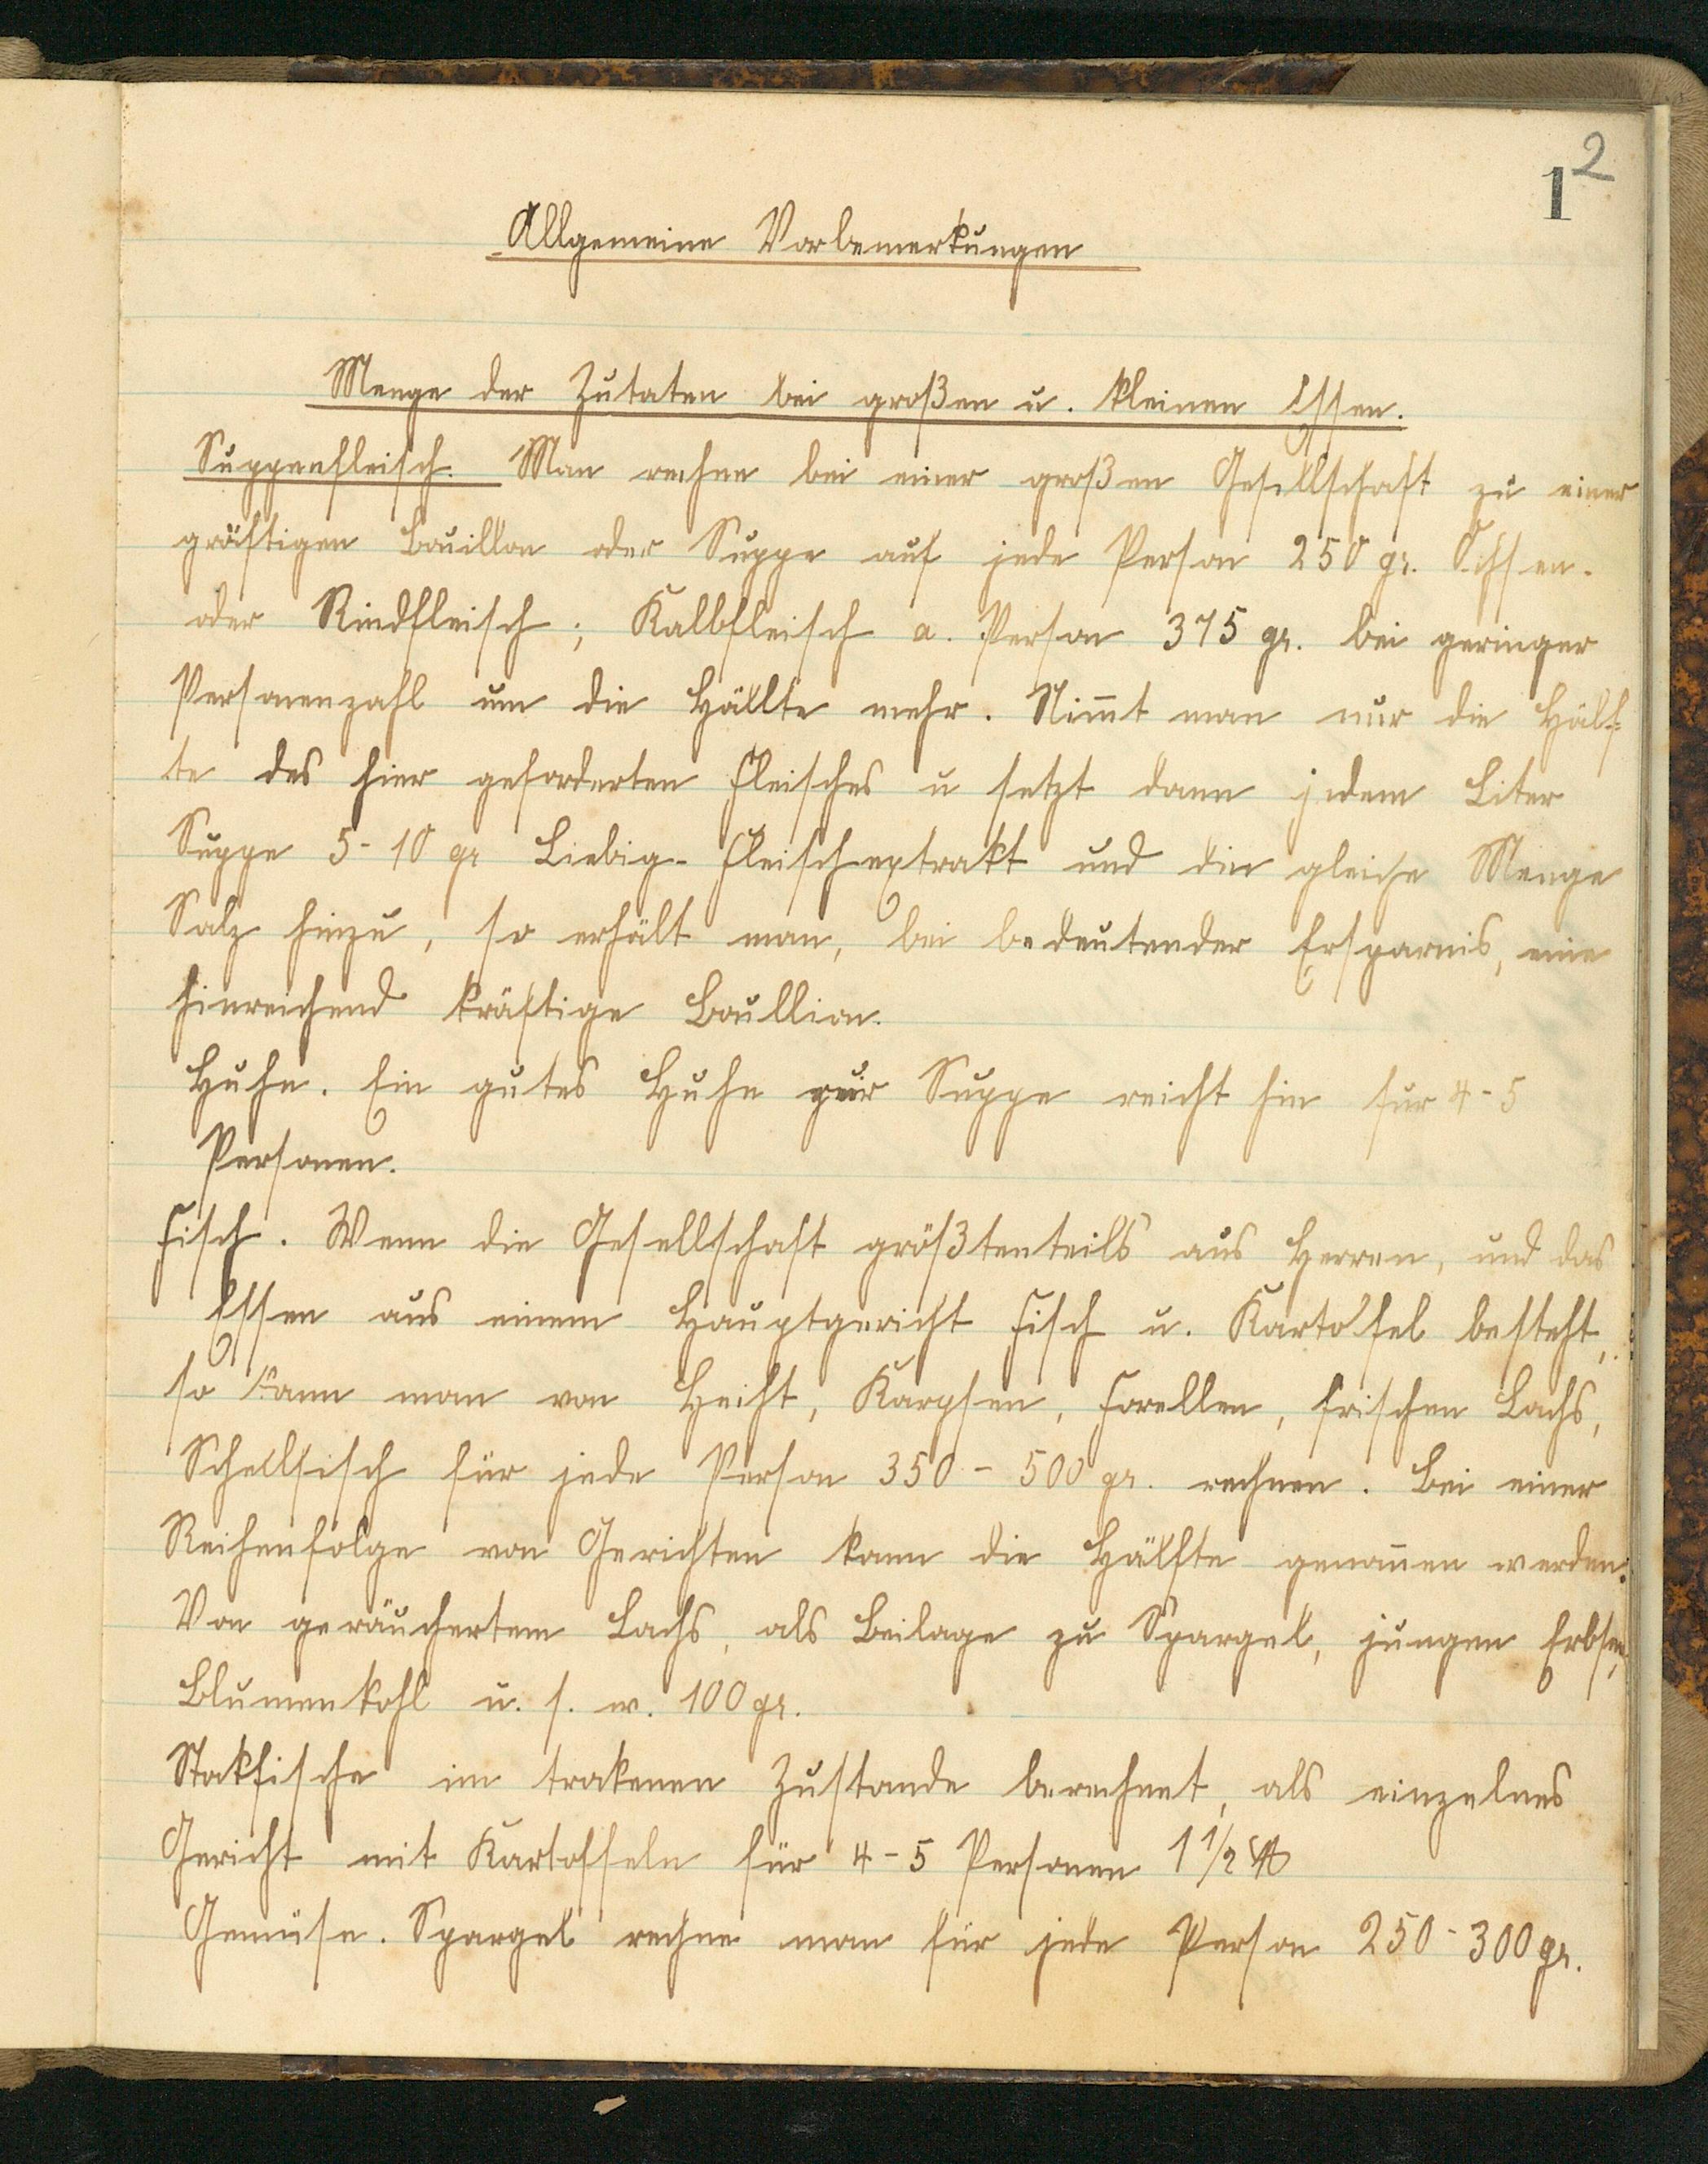 1 2
Allgemeine Vorbemerkungen
Menge der Zutaten bei großen u. kleinen Essen.
Suppenfleisch. Man rechne bei einer großen Gesellschaft zu einer
gräftigen Bouillon oder Suppe auf jede Person 250 gr. Ochsen-
oder Rindfleisch; Kalbfleisch a. Person 375 gr. bei geringer
Personenzahl um die Hällte mehr. Nim̄t man nur die Hälf-
te des hier geforderten Fleisches u setzt dann jedem Liter
Suppe 5-10 gr Liebig-Fleischextrakt und die gleiche Menge
Salz hinzu, so erhält man, bei bedeutender Ersparnis, eine
hinreichend kräftige Boullion.
Huhn. Ein gutes Huhn zur Suppe reicht hin fur 4-5
Personen.
Fisch. Wenn die Gesellschaft größtenteils aus Herren, und das
Essen aus einem Hauptgericht Fisch u. Kartofel besteht,
so kann man von Hecht, Karpfen, Forellen, frischen Lachs,
Schellfisch für jede Person 350-500 gr. rechnen. Bei einer
Reihenfolge von Gerichten kann die Hälfte genom̄en werden.
Von geräuchertem Lachs, als Beilage zu Spargel, jungen Erbsen,
Blumenkohl u. s. w. 100 gr.
Stokfische im trokenen Zustande berechnet, als einzelnes
Gericht mit Kartoffeln für 4-5 Personen 1 1/2 ℔
Gemüse. Spargel rechne man für jede Person 250-300 gr.